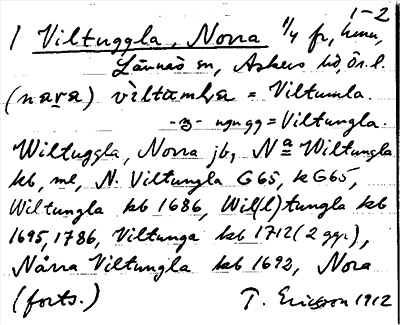 1-2
1 Viltuggla, Norra 1/4 fr, hmn,
Lännäs sn, Askers hd, Ör. l.
(nara) viltumla = Viltumla.
-z- ngngg = Viltungla.
Wiltuggla, Norra jb, Na Wiltungla
kb, ml, N. Viltungla G65, kG65,
Wiltungla kb 1686, Wil(l)tungla kb
1695, 1786, Viltunga kb 1712 (2 ggr),
Nårra Viltungla kb 1692, Nora
(forts.) T. Ericsson 1912